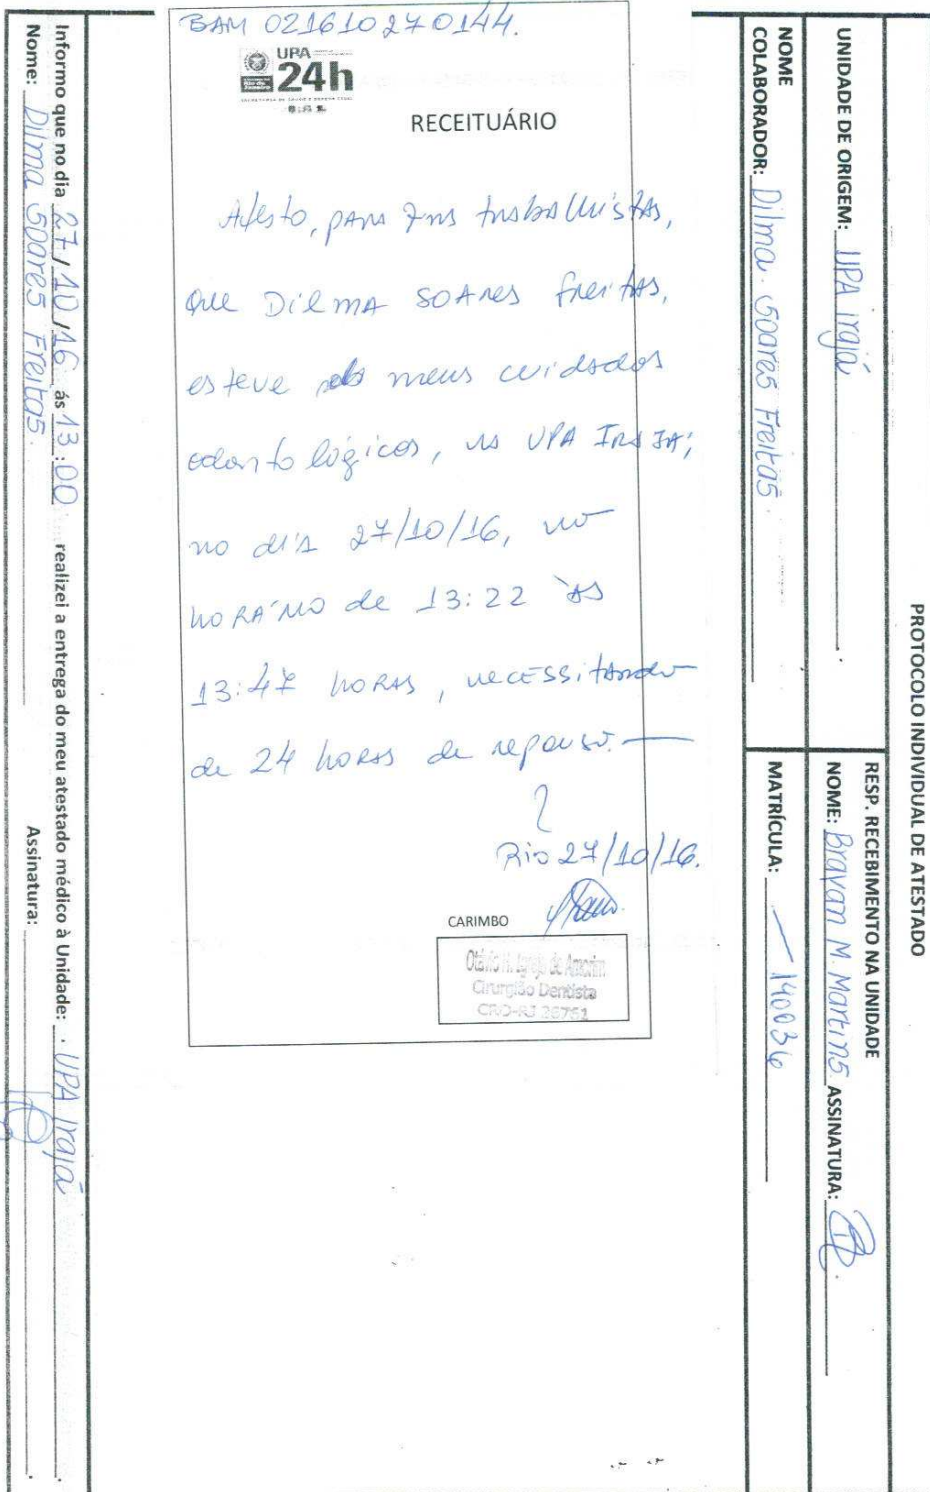 PROTOCOLO INDIVIDUAL DE ATESTADO
UNIDADE DE ORIGEM: UPA Irajá
RESP. RECEBIMENTO NA UNIDADE
NOME: Brayan M. Martins ASSINATURA:
NOME
COLABORADOR: Dilma Soares Freitas.
MATRÍCULA: 140036
BAM 021610270144.
UPA
24h
RECEITUÁRIO
Atesto, para fins trabalhistas,
que Dilma Soares Freitas,
esteve meus cuidados
odontológicos, na UPA Irajá,
no dia 27/10/16, no
horário de 13:22 às
13:47 horas, necessitando
de 24 horas de repouso.
Rio 27/10/16.
CARIMBO
Otávio de Amorim
Cirurgião Dentista
CRO-RJ 26751
Informo que no dia 27/10/16 ás 13:00 realizei a entrega do meu atestado médico à Unidade: UPA Irajá
Nome: Dilma Soares Freitas. Assinatura: